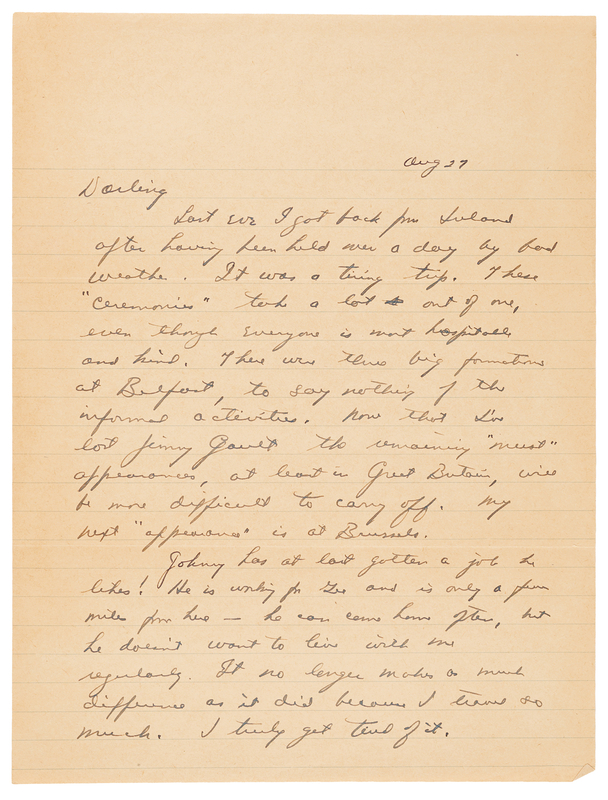 Aug 27
Darling
Last eve I got back from Ireland
after having been held over a day by bad
weather. It was a tiring trip. These
"ceremonies" take a lot out of one,
even though everyone is most hospitable
and kind. There were three big formations
at Belfast, to say nothing of the
informal activities. Now that I've
lost Jimmy Gault the remaining "must"
appearances, at least in Great Britain, will
be more difficult to carry off. My
next "appearance" is at Brussels.
Johnny has at last gotten a job he
likes! He is working for and is only a few
miles from here — he can come home often, but
he doesn't want to live with me
regularly. It no longer makes as much
difference as it did because I travel so
much. I truly get tired of it.